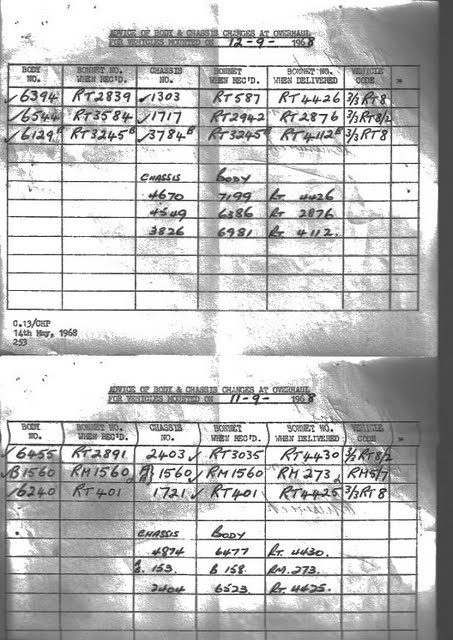 ADVICE OF BODY & CHASSIS CHANGES AT OVERHAUL
FOR VEHICLES MOUNTED ON 12-9- 1968
BODY NO. BONNET NO. WHEN REC'D. CHASSIS NO. BONNET WHEN REC'D. BONNET NO. WHEN DELIVERED VEHICLE CODE
✓6394 RT2839 ✓1303 RT587 RT4426 3/3RT8
✓6544 RT3584 ✓1717 RT2942 RT2876 3/3RT8/2
✓6129B RT3245B ✓3784B RT3245B RT4112B 3/3RT8
CHASSIS BODY
4670 7199 RT 4426
4549 6386 RT 2876
3826 6981 RT 4112.
C.13/CHP
14th May, 1968
253
ADVICE OF BODY & CHASSIS CHANGES AT OVERHAUL
FOR VEHICLES MOUNTED ON 11-9- 1968
BODY NO. BONNET NO. WHEN REC'D. CHASSIS NO. BONNET WHEN REC'D. BONNET NO. WHEN DELIVERED VEHICLE CODE
✓6455 RT2891 2403✓ RT3035 RT4430 3/3RT8/2
✓B1560 RM1560 1560✓ RM1560 RM273 RM5/7
✓6240 RT401 1721✓ RT401 RT4425 3/3RT8
CHASSIS BODY
4874 6477 RT. 4430.
153. B 158. RM. 273.
2404 6523. RT. 4425.